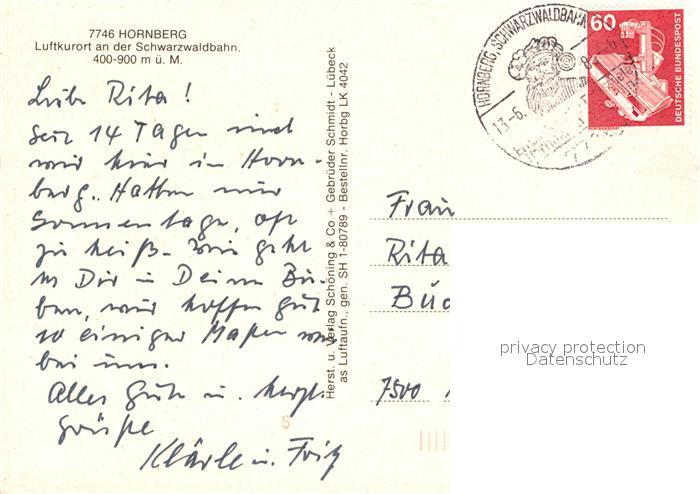 7746 HORNBERG
Luftkurort an der Schwarzwaldbahn,
400-900 m ü. M.
Liebe Rita!
Seit 14 Tagen sind
wir hier in Horn-
berg. Hatten nur
Sonnentage, oft
zu heiß. Wie geht
es Dir in Deine
ben, wir hoffen gut
so einiger Maßen wie
bei uns.
Alles Gute u. herzl.
Grüße
Klärle u. Fritz
Herst. u. Verlag Schöning & Co + Gebrüder Schmidt - Lübeck
as Luftaufn., gen. SH 1-80789 - Bestellnr. Horbg LK 4042
HORNBERG, SCHWARZWALDBAHN
13-6.
60
DEUTSCHE BUNDESPOST
Frau
Rita
Büc
7500
privacy protection
Datenschutz